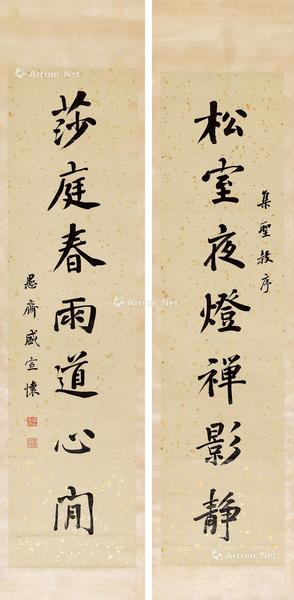 集聖教序
松室夜燈禪影靜
莎庭春雨道心閒
愚齋盛宣懷
Artron.Net
Artron.Net
Artron.Net
Artron.Net